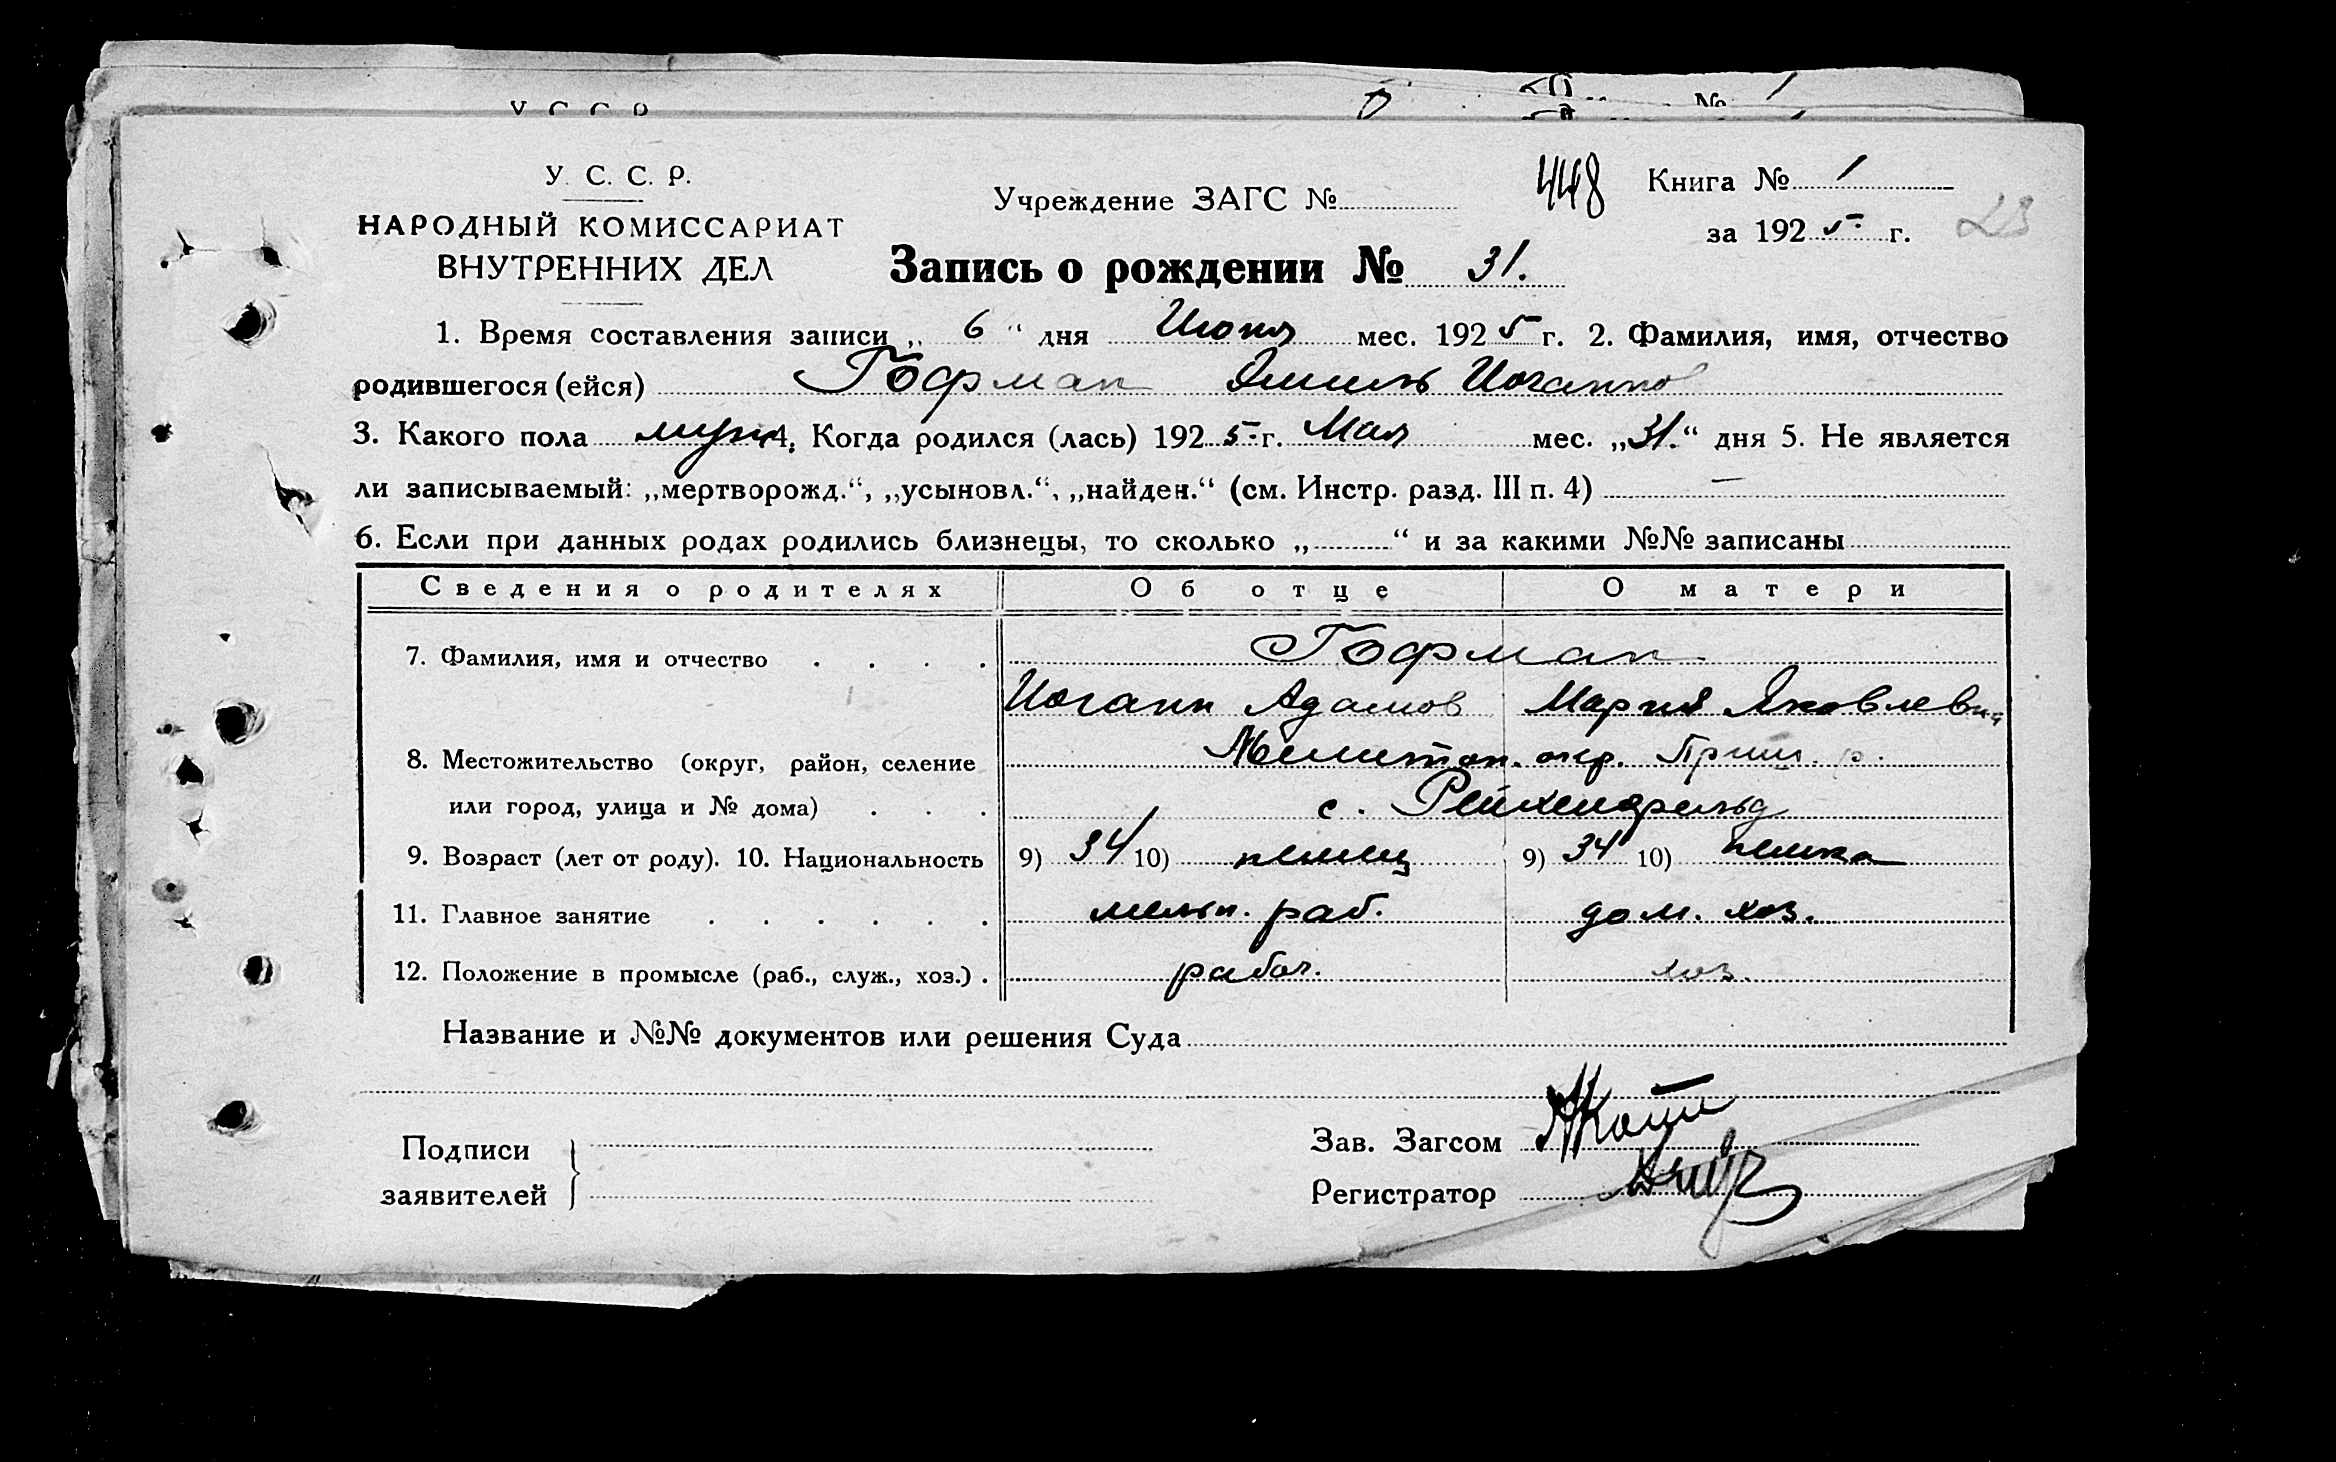 У. С. С. Р.
Учреждение ЗАГС № 448 Книга № 1
НАРОДНЫЙ КОМИССАРИАТ
за 1925 г. 23
ВНУТРЕННИХ ДЕЛ
Запись о рождении № 31.
1. Время составления записи „ 6 “ дня Июня мес. 1925 г. 2. Фамилия, имя, отчество
родившегося (ейся) Гофман Эмиль Иоганнов
3. Какого пола муж 4. Когда родился (лась) 1925 г. Мая мес. „31.“ дня 5. Не является
ли записываемый: „мертворожд.“, „усыновл.“, „найден.“ (см. Инстр. разд. III п. 4) —
6. Если при данных родах родились близнецы, то сколько „..........“ и за какими №№ записаны
Сведения о родителях Об отце О матери
7. Фамилия, имя и отчество . . . . Гофман
Иоганн Адамов Мария Яковлевна
8. Местожительство (округ, район, селение Мелитоп. окр. Приш. р.
или город, улица и № дома) . . . с. Рейхенфельд
9. Возраст (лет от роду). 10. Национальность 9) 34 10) немец 9) 34 10) немка
11. Главное занятие . . . . . . мельн. раб. дом. хоз.
12. Положение в промысле (раб., служ., хоз.) . рабоч. хоз.
Название и №№ документов или решения Суда
Подписи Зав. Загсом
заявителей Регистратор